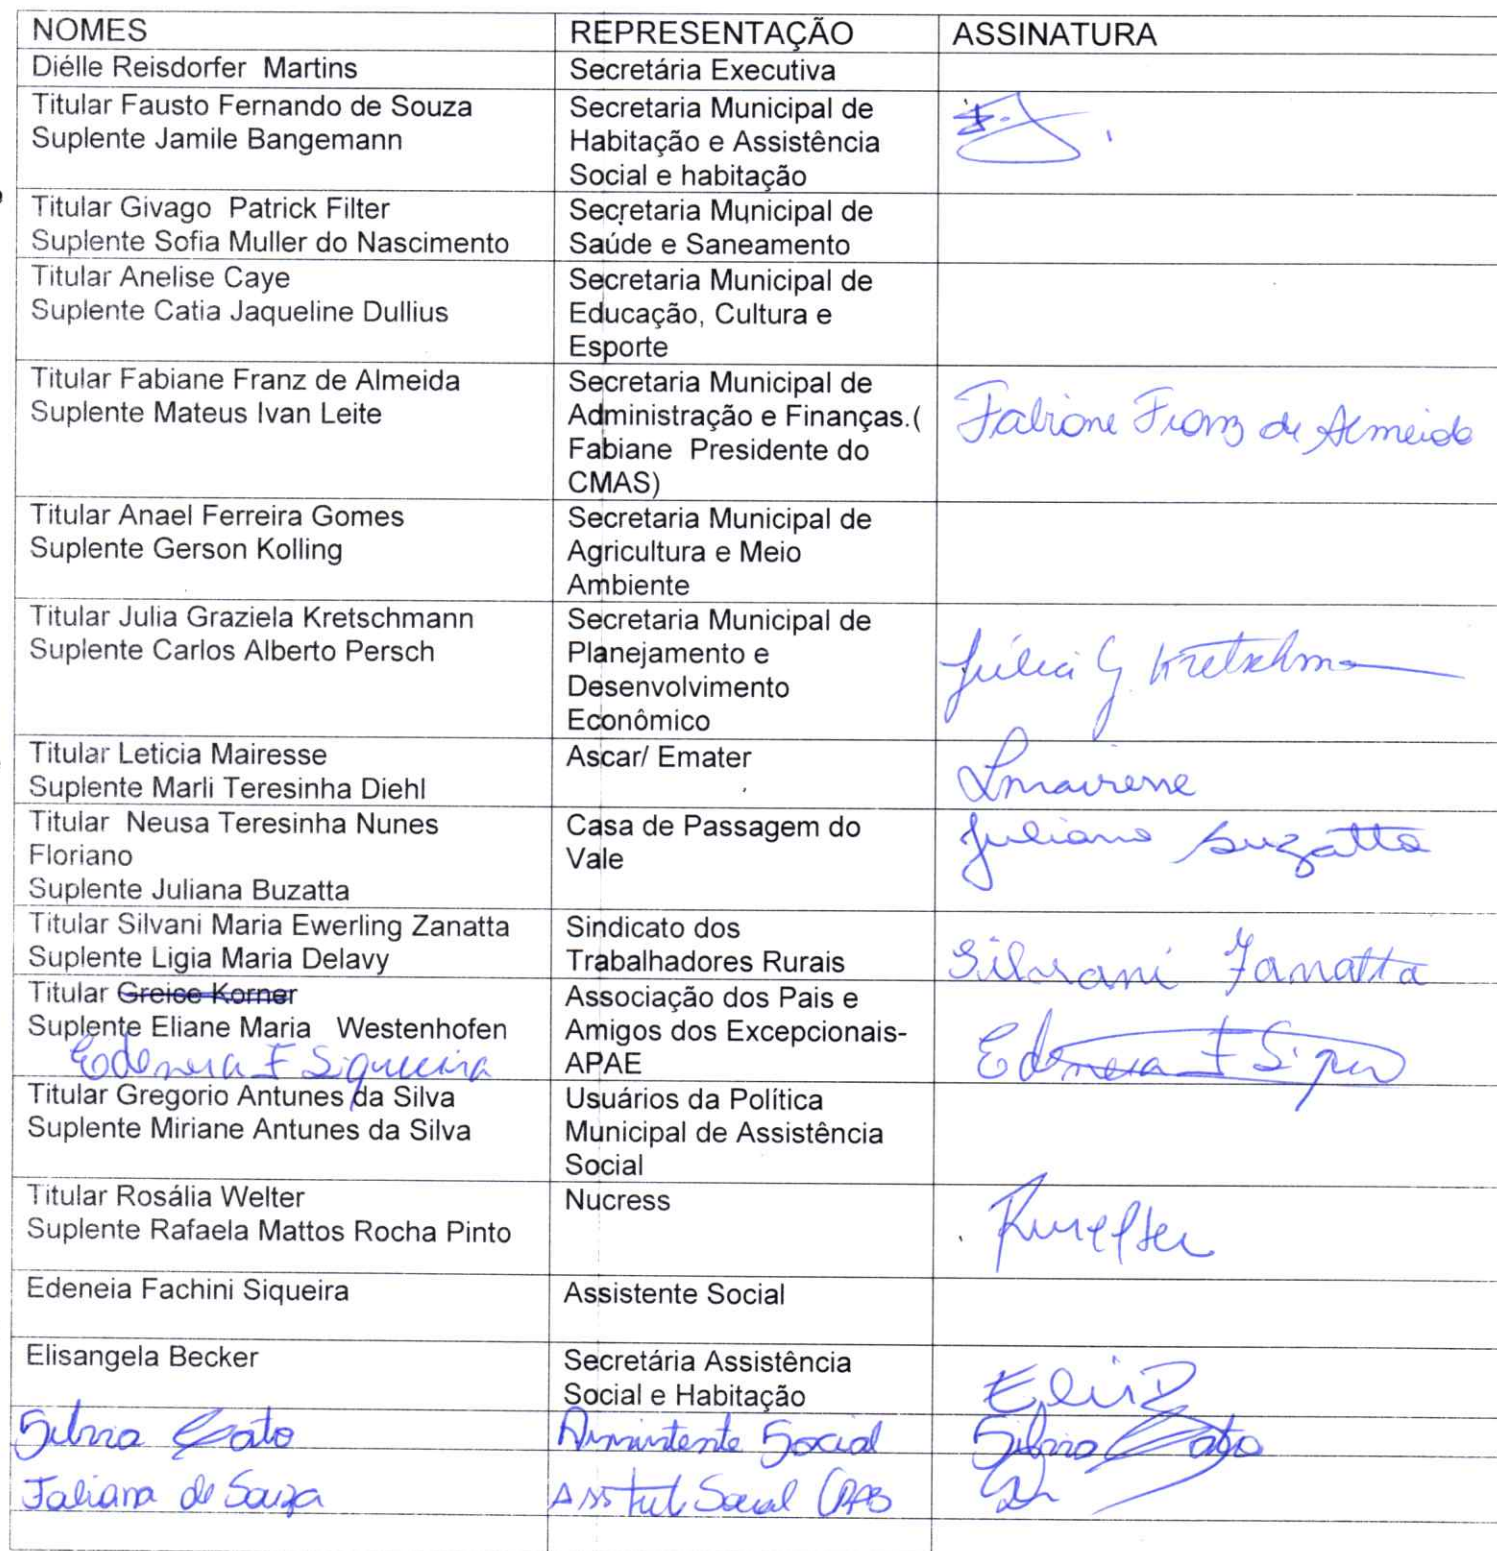 NOMES REPRESENTAÇÃO ASSINATURA
Diélle Reisdorfer Martins Secretária Executiva
Titular Fausto Fernando de Souza
Suplente Jamile Bangemann
Secretaria Municipal de
Habitação e Assistência
Social e habitação
Titular Givago Patrick Filter
Suplente Sofia Muller do Nascimento
Secretaria Municipal de
Saúde e Saneamento
Titular Anelise Caye
Suplente Catia Jaqueline Dullius
Secretaria Municipal de
Educação, Cultura e
Esporte
Titular Fabiane Franz de Almeida
Suplente Mateus Ivan Leite
Secretaria Municipal de
Administração e Finanças.(
Fabiane Presidente do
CMAS)
Fabiane Franz de Almeida
Titular Anael Ferreira Gomes
Suplente Gerson Kolling
Secretaria Municipal de
Agricultura e Meio
Ambiente
Titular Julia Graziela Kretschmann
Suplente Carlos Alberto Persch
Secretaria Municipal de
Planejamento e
Desenvolvimento
Econômico
Júlia G. Kretschma
Titular Leticia Mairesse
Suplente Marli Teresinha Diehl
Ascar/ Emater
Lmairesse
Titular Neusa Teresinha Nunes
Floriano
Suplente Juliana Buzatta
Casa de Passagem do
Vale
Juliana Buzatta
Titular Silvani Maria Ewerling Zanatta
Suplente Ligia Maria Delavy
Sindicato dos
Trabalhadores Rurais
Silvani Zanatta
Titular Greice Korner
Suplente Eliane Maria Westenhofen
Edeneia F Siqueira
Associação dos Pais e
Amigos dos Excepcionais-
APAE
Edeneia F
Titular Gregorio Antunes da Silva
Suplente Miriane Antunes da Silva
Usuários da Política
Municipal de Assistência
Social
Titular Rosália Welter
Suplente Rafaela Mattos Rocha Pinto
Nucress
Edeneia Fachini Siqueira Assistente Social
Elisangela Becker
Secretária Assistência
Social e Habitação
Silvia Assistente Social Silvia
de Souza Social